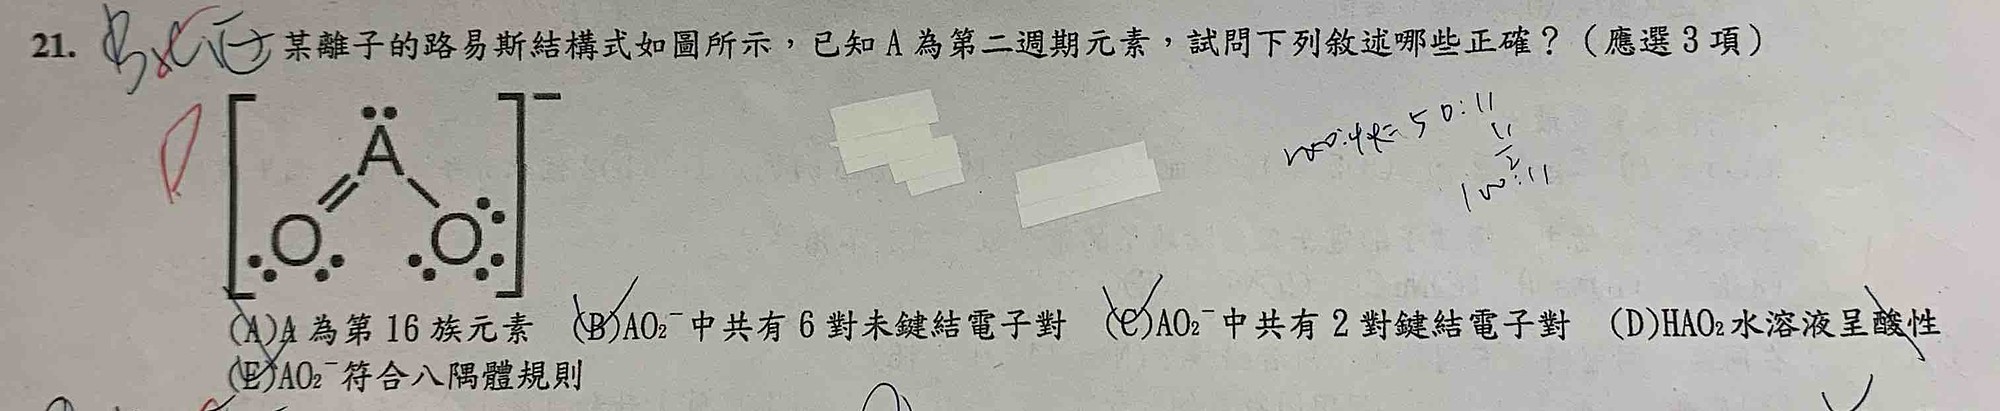 21. B C E 某離子的路易斯結構式如圖所示，已知 A 為第二週期元素，試問下列敘述哪些正確？（應選 3 項）
D
A
O O
−
50:11
11
2
100:11
(A)A 為第 16 族元素 (B)AO₂⁻中共有 6 對未鍵結電子對 (C)AO₂⁻中共有 2 對鍵結電子對 (D)HAO₂水溶液呈酸性
(E)AO₂⁻符合八隅體規則